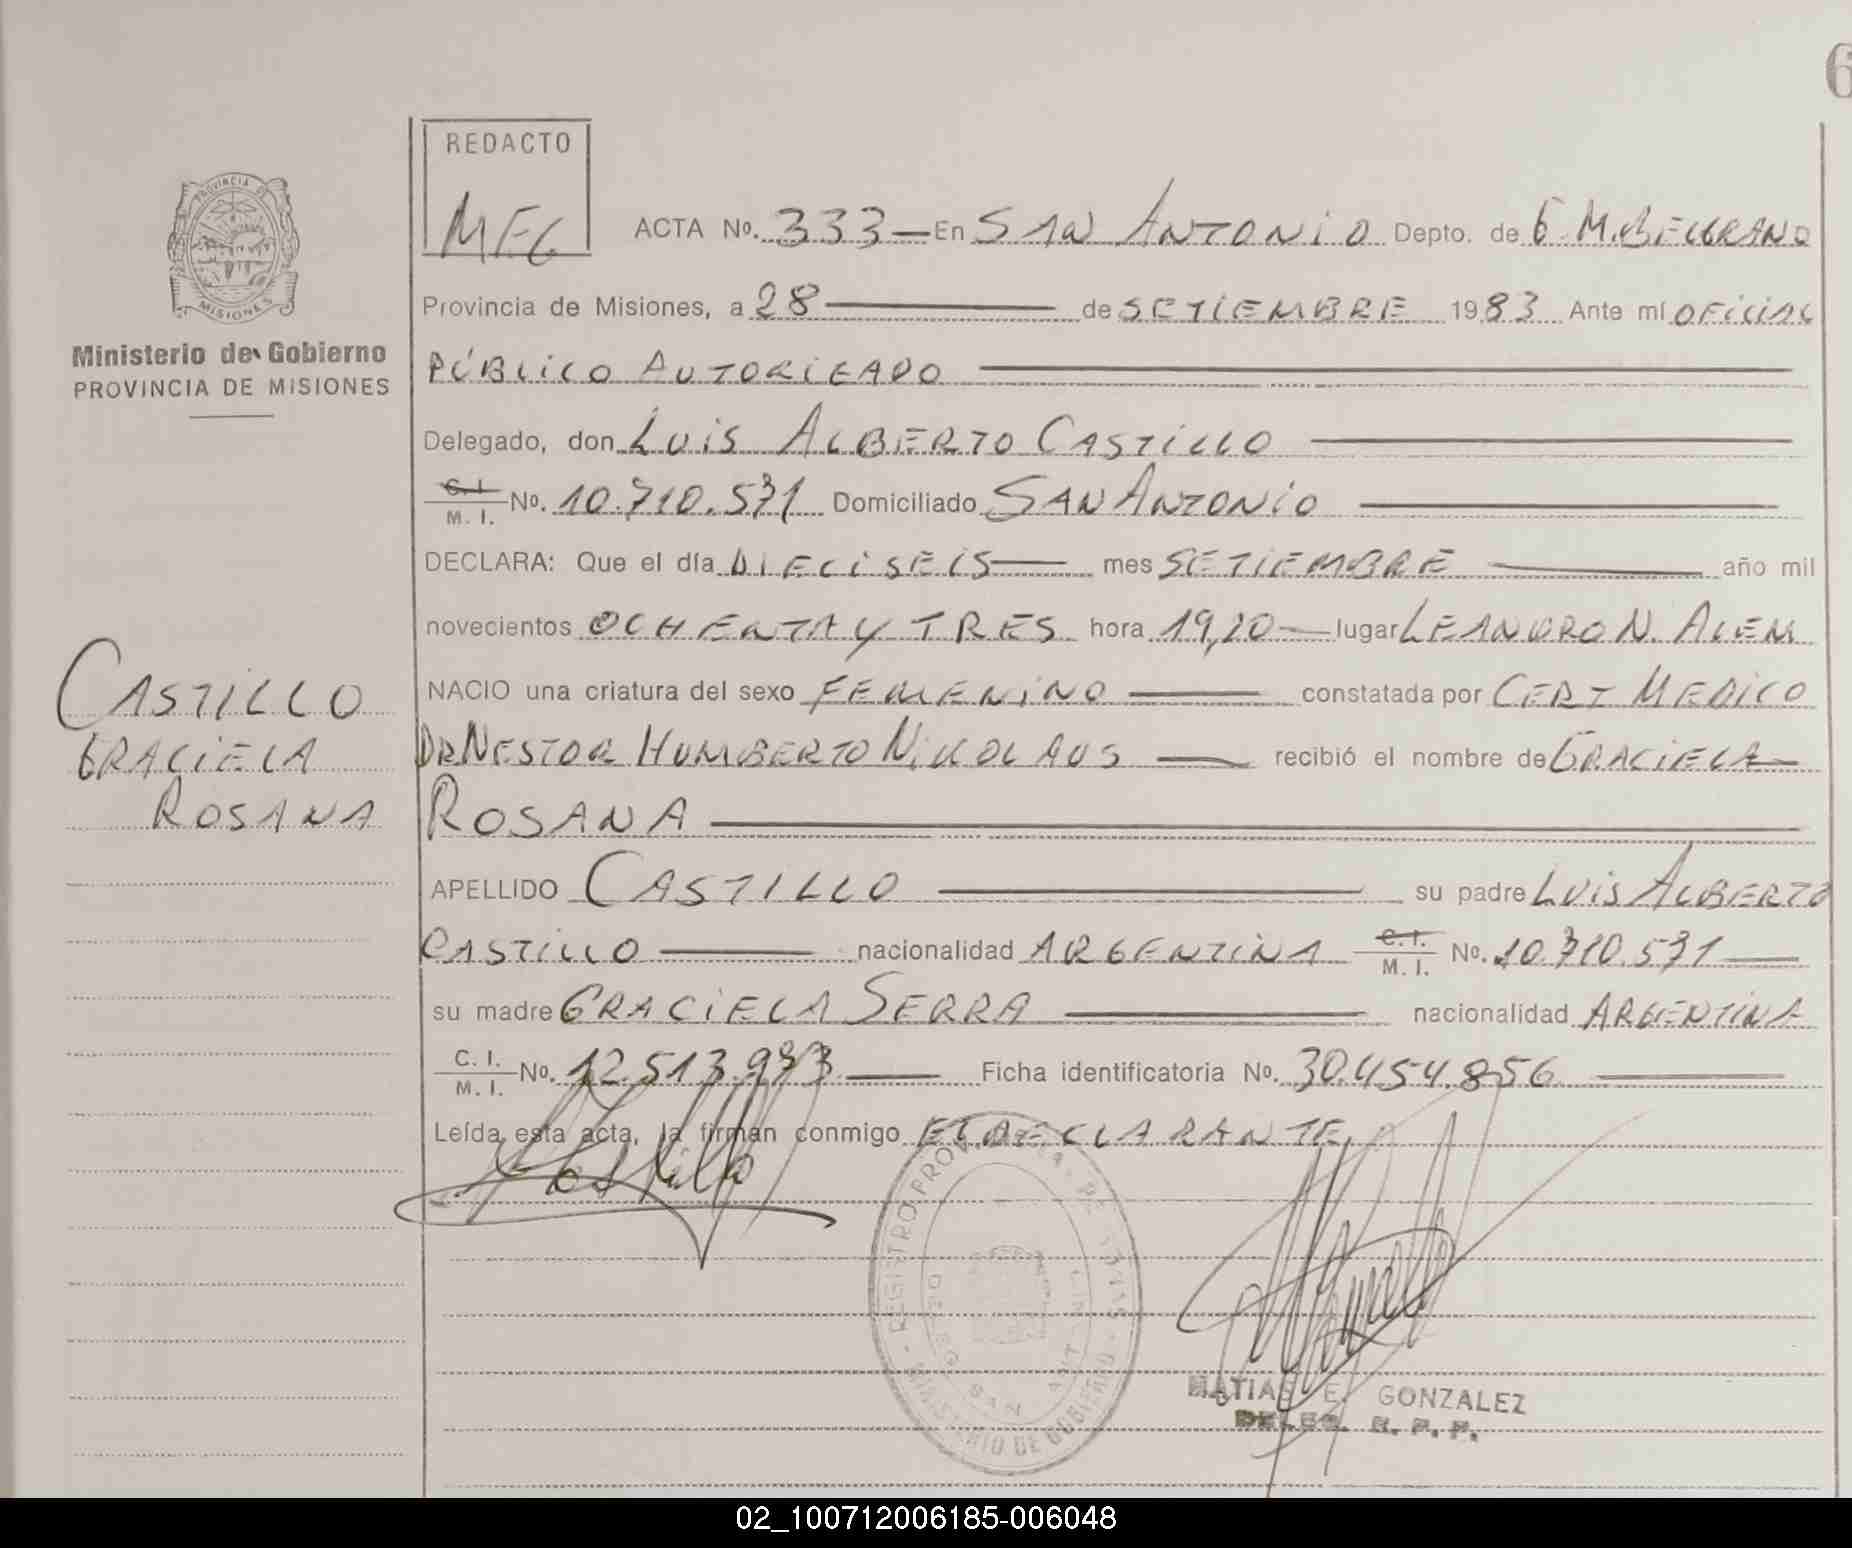 6
REDACTO
MEG
PROVINCIA DE
MISIONES
Ministerio de Gobierno
PROVINCIA DE MISIONES
ACTA No. 333 — En SAN ANTONIO Depto. de G. M. BELGRANO
Provincia de Misiones, a 28 — de SETIEMBRE 1983 Ante mí OFICIAL
PÚBLICO AUTORIZADO —
Delegado, don LUIS ALBERTO CASTILLO —
C. I. / M. I. No. 10.710.571 Domiciliado SAN ANTONIO —
DECLARA: Que el día DIECISEIS — mes SETIEMBRE — año mil
novecientos OCHENTA Y TRES hora 19,20 — lugar LEANDRO N. ALEM
NACIO una criatura del sexo FEMENINO — constatada por CERT MEDICO
DR NESTOR HUMBERTO NIKOLAUS — recibió el nombre de GRACIELA
ROSANA —
APELLIDO CASTILLO — su padre LUIS ALBERTO
CASTILLO — nacionalidad ARGENTINA C. I. / M. I. No. 10.710.571 —
su madre GRACIELA SERRA — nacionalidad ARGENTINA
C. I. / M. I. No. 12.513.973 — Ficha identificatoria No. 30.454.856 —
Leída esta acta, la firman conmigo EL DECLARANTE,
CASTILLO
GRACIELA
ROSANA
Castillo
REGISTRO PROV. DE LAS PERSONAS
MINISTERIO DE GOBIERNO
SAN ANT
MATIAS E. GONZALEZ
DELEG. R. P. P.
02_100712006185-006048